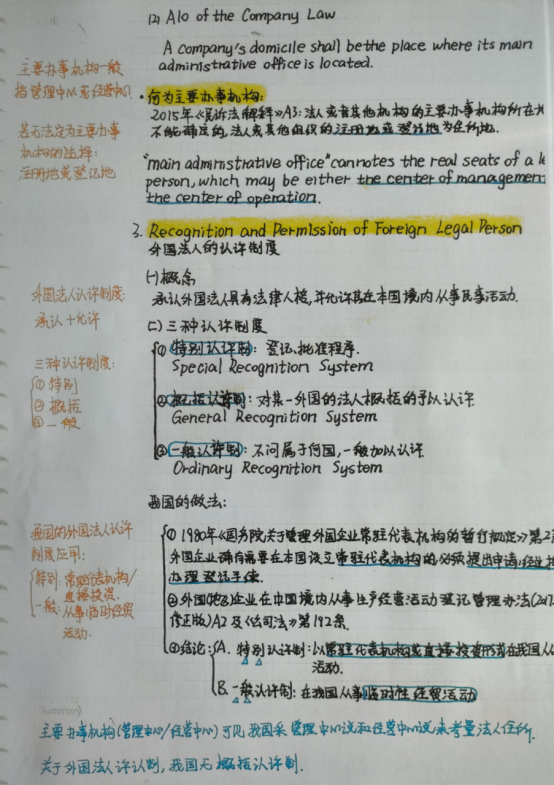 (2) A10 of the Company Law
A company's domicile shall be the place where its main
administrative office is located.
主要办事机构一般
指管理中心或经营中心
若无法定为主要办事
机构的选择:
注册地或登记地
•何为主要办事机构:
2015年《民诉法解释》A3:法人或者其他机构的主要办事机构所在地
不能确定的,法人或其他组织的注册地或登记地为住所地.
"main administrative office" cannotes the real seats of a le
person, which may be either the center of managemen
the center of operation.
3. Recognition and Permission of Foreign Legal Person
外国法人的认许制度
(一)概念
承认外国法人具有法律人格,并允许其在本国境内从事民事活动.
外国法人认许制度:
承认+允许
(二)三种认许制度
三种认许制度:
①特别
②概括
③一般
①特别认许制:登记、批准程序.
Special Recognition System
②概括认许制:对某一外国的法人概括的予以认许
General Recognition System
③一般认许制:不问属于何国,一般加以认许
Ordinary Recognition System
我国的做法:
我国的外国法人认许
制度应用:
特别:常驻代表机构/
直接投资.
一般:从事临时经贸
活动.
①1980年《国务院关于管理外国企业常驻代表机构的暂行规定》第2条
外国企业确有需要在本国设立常驻代表机构的必须提出申请,经批
办理登记手续.
②外国(地区)企业在中国境内从事生产经营活动登记管理办法(2017
修正版)A2及《公司法》第192条
③结论:A. 特别认许制:以常驻代表机构或直接投资形式在我国从
活动.
B. 一般认许制:在我国从事临时性经贸活动
Summary
主要办事机构(管理中心/经营中心)可见,我国采管理中心说和经营中心说来考量法人住所.
关于外国法人认许制,我国无概括认许制.